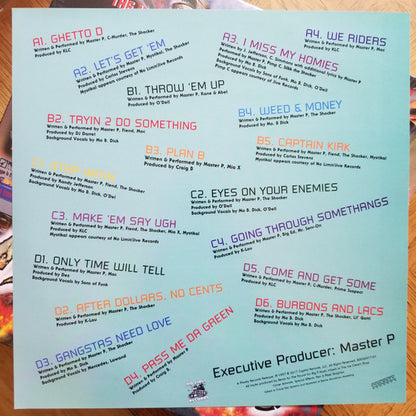 A1. GHETTO D
Written & Performed by Master P, C-Murder, The Shocker
Produced by KLC
A2. LET'S GET 'EM
Written & Performed by Master P, Mystikal, The Shocker
Produced by Carlos Stevens
Mystikal appears courtesy of No Limit/Jive Records
A3. I MISS MY HOMIES
Produced by Mo B. Dick
Written & Performed by Master P, Pimp C, Silkk the Shocker
Background Vocals by Sons of Funk, Mo B. Dick, O'Dell
Pimp C appears courtesy of Jive Records
A4. WE RIDERS
Written & Performed by Master P, Mac
Produced by KLC
B1. THROW 'EM UP
Written & Performed by Master P, Kane & Abel
Produced by O'Dell
B2. TRYIN 2 DO SOMETHING
Written & Performed by Master P, Fiend, Mac
Produced by DJ Daryl
Background Vocals by Mo B. Dick
B3. PLAN B
Written & Performed by Master P, Mia X
Produced by Craig B
B4. WEED & MONEY
Written & Performed by Master P, The Shocker
Produced by Mo B. Dick
B5. CAPTAIN KIRK
Written & Performed by Master P, Fiend, The Shocker, Mystikal
Produced by Carlos Stevens
Mystikal appears courtesy of No Limit/Jive Records
C1. STOP HATIN
Written & Performed by Master P, Fiend, The Shocker
Produced by Randy Jefferson
Background Vocals by Mo B. Dick, O'Dell
C2. EYES ON YOUR ENEMIES
Written & Performed by Master P, The Shocker
Produced by O'Dell
Background Vocals by Mo B. Dick, O'Dell
C3. MAKE 'EM SAY UGH
Written & Performed by Master P, Fiend, The Shocker, Mia X, Mystikal
Produced by KLC
Mystikal appears courtesy of No Limit/Jive Records
C4. GOING THROUGH SOMETHANGS
Written & Performed by Master P, Big Ed, Mr. Serv-On
Produced by K-Lou
D1. ONLY TIME WILL TELL
Written & Performed by Master P, Mac
Produced by Dez
Background Vocals by Sons of Funk
D2. AFTER DOLLARS, NO CENTS
Written & Performed by Master P, The Shocker
Produced by K-Lou
D3. GANGSTAS NEED LOVE
Written & Performed by Master P, The Shocker
Produced by Mo B. Dick
Background Vocals by Mercedes,
D4. PASS ME DA GREEN
Written & Performed by Master P
Produced by Craig B
D5. COME AND GET SOME
Written & Performed by Master P, C-Murder, Prime Suspect
Produced by KLC
D6. BURBONS AND LACS
Written & Performed by Master P, The Shocker, Lil' Gotti
Produced by Mo B. Dick
Background Vocals by Mo B. Dick
Executive Producer: Master P